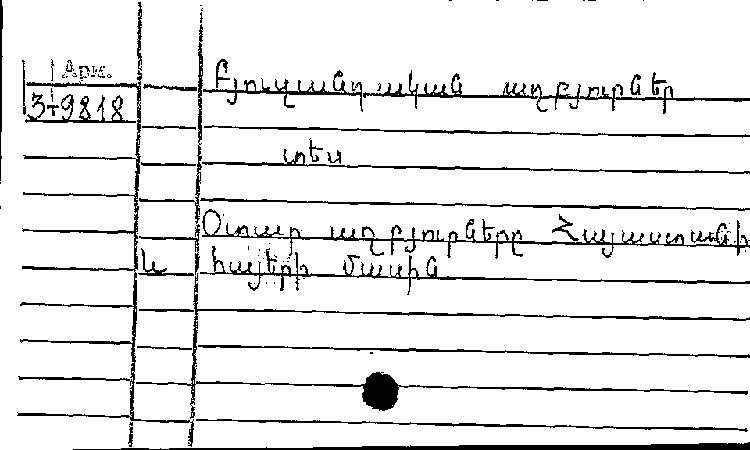 Арм.
3+9818
Բյուզանդական աղբյուրներ
տես
Օտար աղբյուրները Հայաստանի
և հայերի մասին